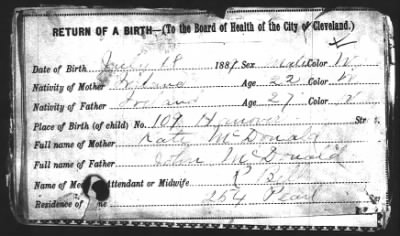 RETURN OF A BIRTH—(To the Board of Health of the City of Cleveland.)
Date of Birth July 18 188 Sex Male Color W
Nativity of Mother Age 22 Color W
Nativity of Father Age 27 Color
Place of Birth (of child) No. 109 Hanover Str
Full name of Mother Kate McDonald
Full name of Father John McDonald
Name of Me Attendant or Midwife
Residence of 254 Pearl